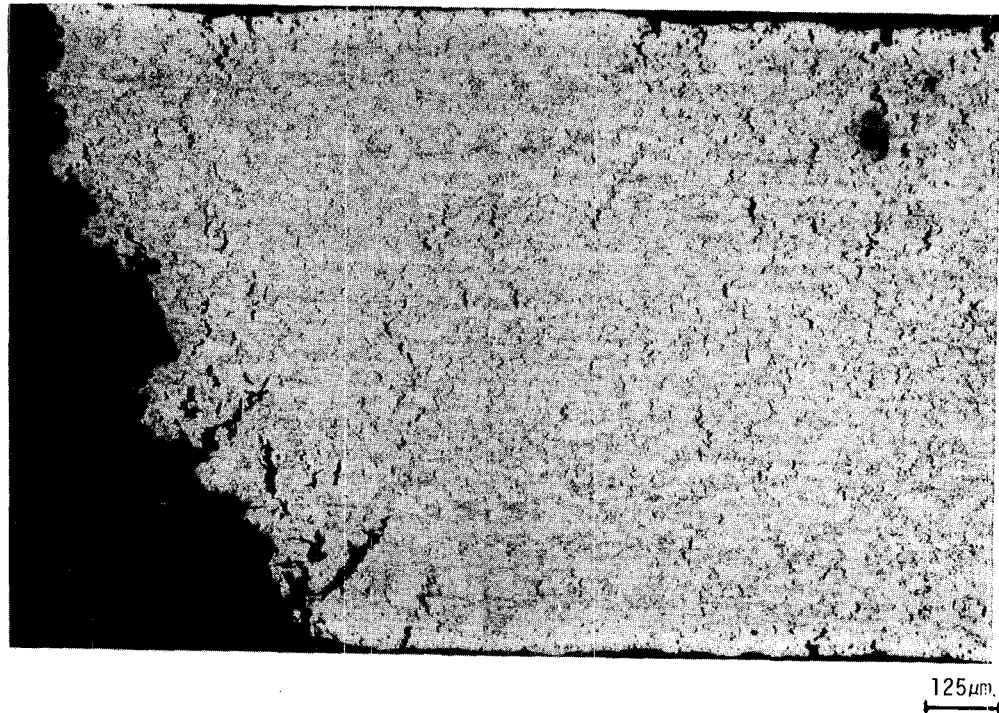 125μm